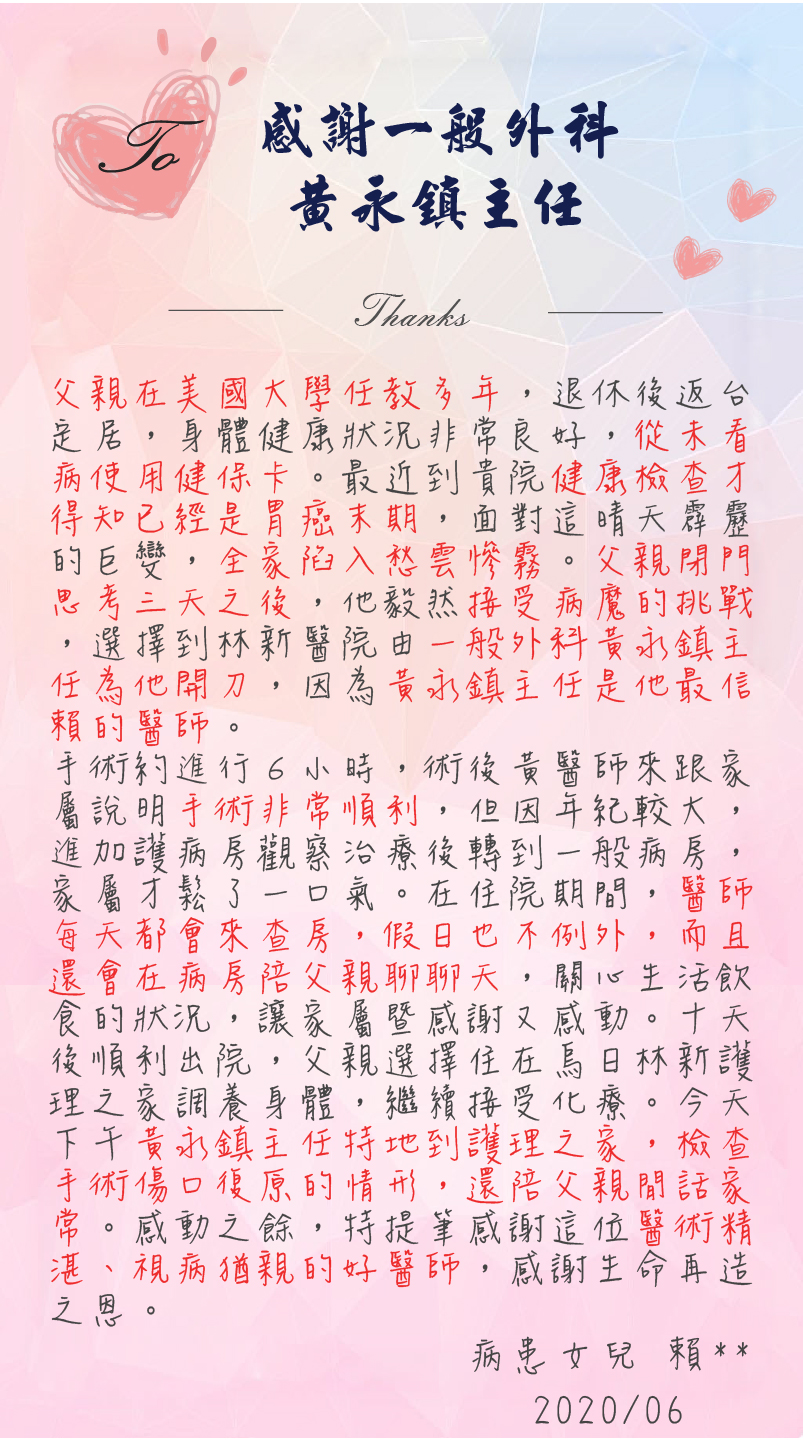 To
感謝一般外科
黃永鎮主任
Thanks
父親在美國大學任教多年，退休後返台
定居，身體健康狀況非常良好，從未看
病使用健保卡。最近到貴院健康檢查才
得知已經是胃癌末期，面對這晴天霹靂
的巨變，全家陷入愁雲慘霧。父親閉門
思考三天之後，他毅然接受病魔的挑戰
，選擇到林新醫院由一般外科黃永鎮主
任為他開刀，因為黃永鎮主任是他最信
賴的醫師。
手術約進行6小時，術後黃醫師來跟家
屬說明手術非常順利，但因年紀較大，
進加護病房觀察治療後轉到一般病房，
家屬才鬆了一口氣。在住院期間，醫師
每天都會來查房，假日也不例外，而且
還會在病房陪父親聊聊天，關心生活飲
食的狀況，讓家屬暨感謝又感動。十天
後順利出院，父親選擇住在烏日林新護
理之家調養身體，繼續接受化療。今天
下午黃永鎮主任特地到護理之家，檢查
手術傷口復原的情形，還陪父親閒話家
常。感動之餘，特提筆感謝這位醫術精
湛、視病猶親的好醫師，感謝生命再造
之恩。
病患女兒 賴**
2020/06